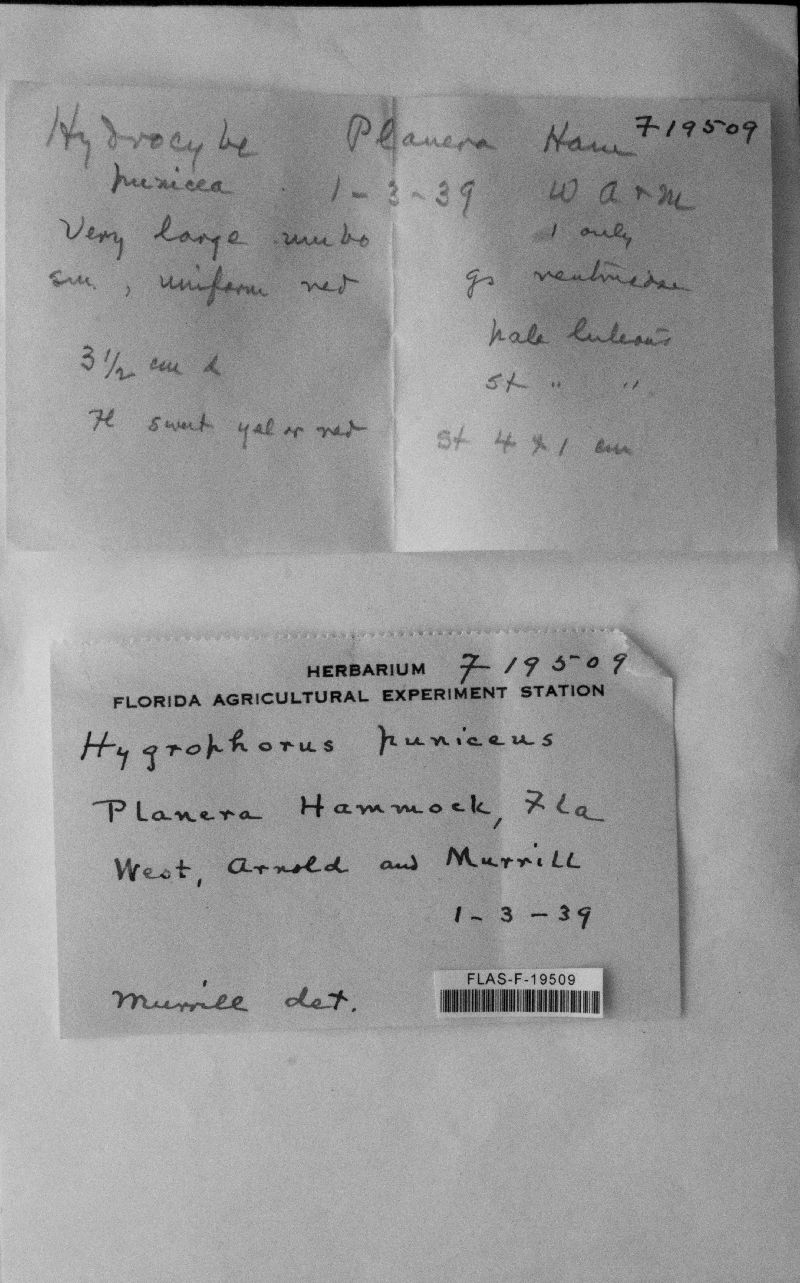 Hydrocybe Planera Ham F19509
punicea 1-3-39 W A + M
Very large umbo 1 only
sm, uniform red gs ventricose
pale luteous
3 1/2 cm d
st " "
Fl sweet yel or red
St 4 x 1 cm
HERBARIUM F 19509
FLORIDA AGRICULTURAL EXPERIMENT STATION
Hygrophorus puniceus
Planera Hammock, Fla
West, Arnold and Murrill
1-3-39
FLAS-F-19509
Murrill det.